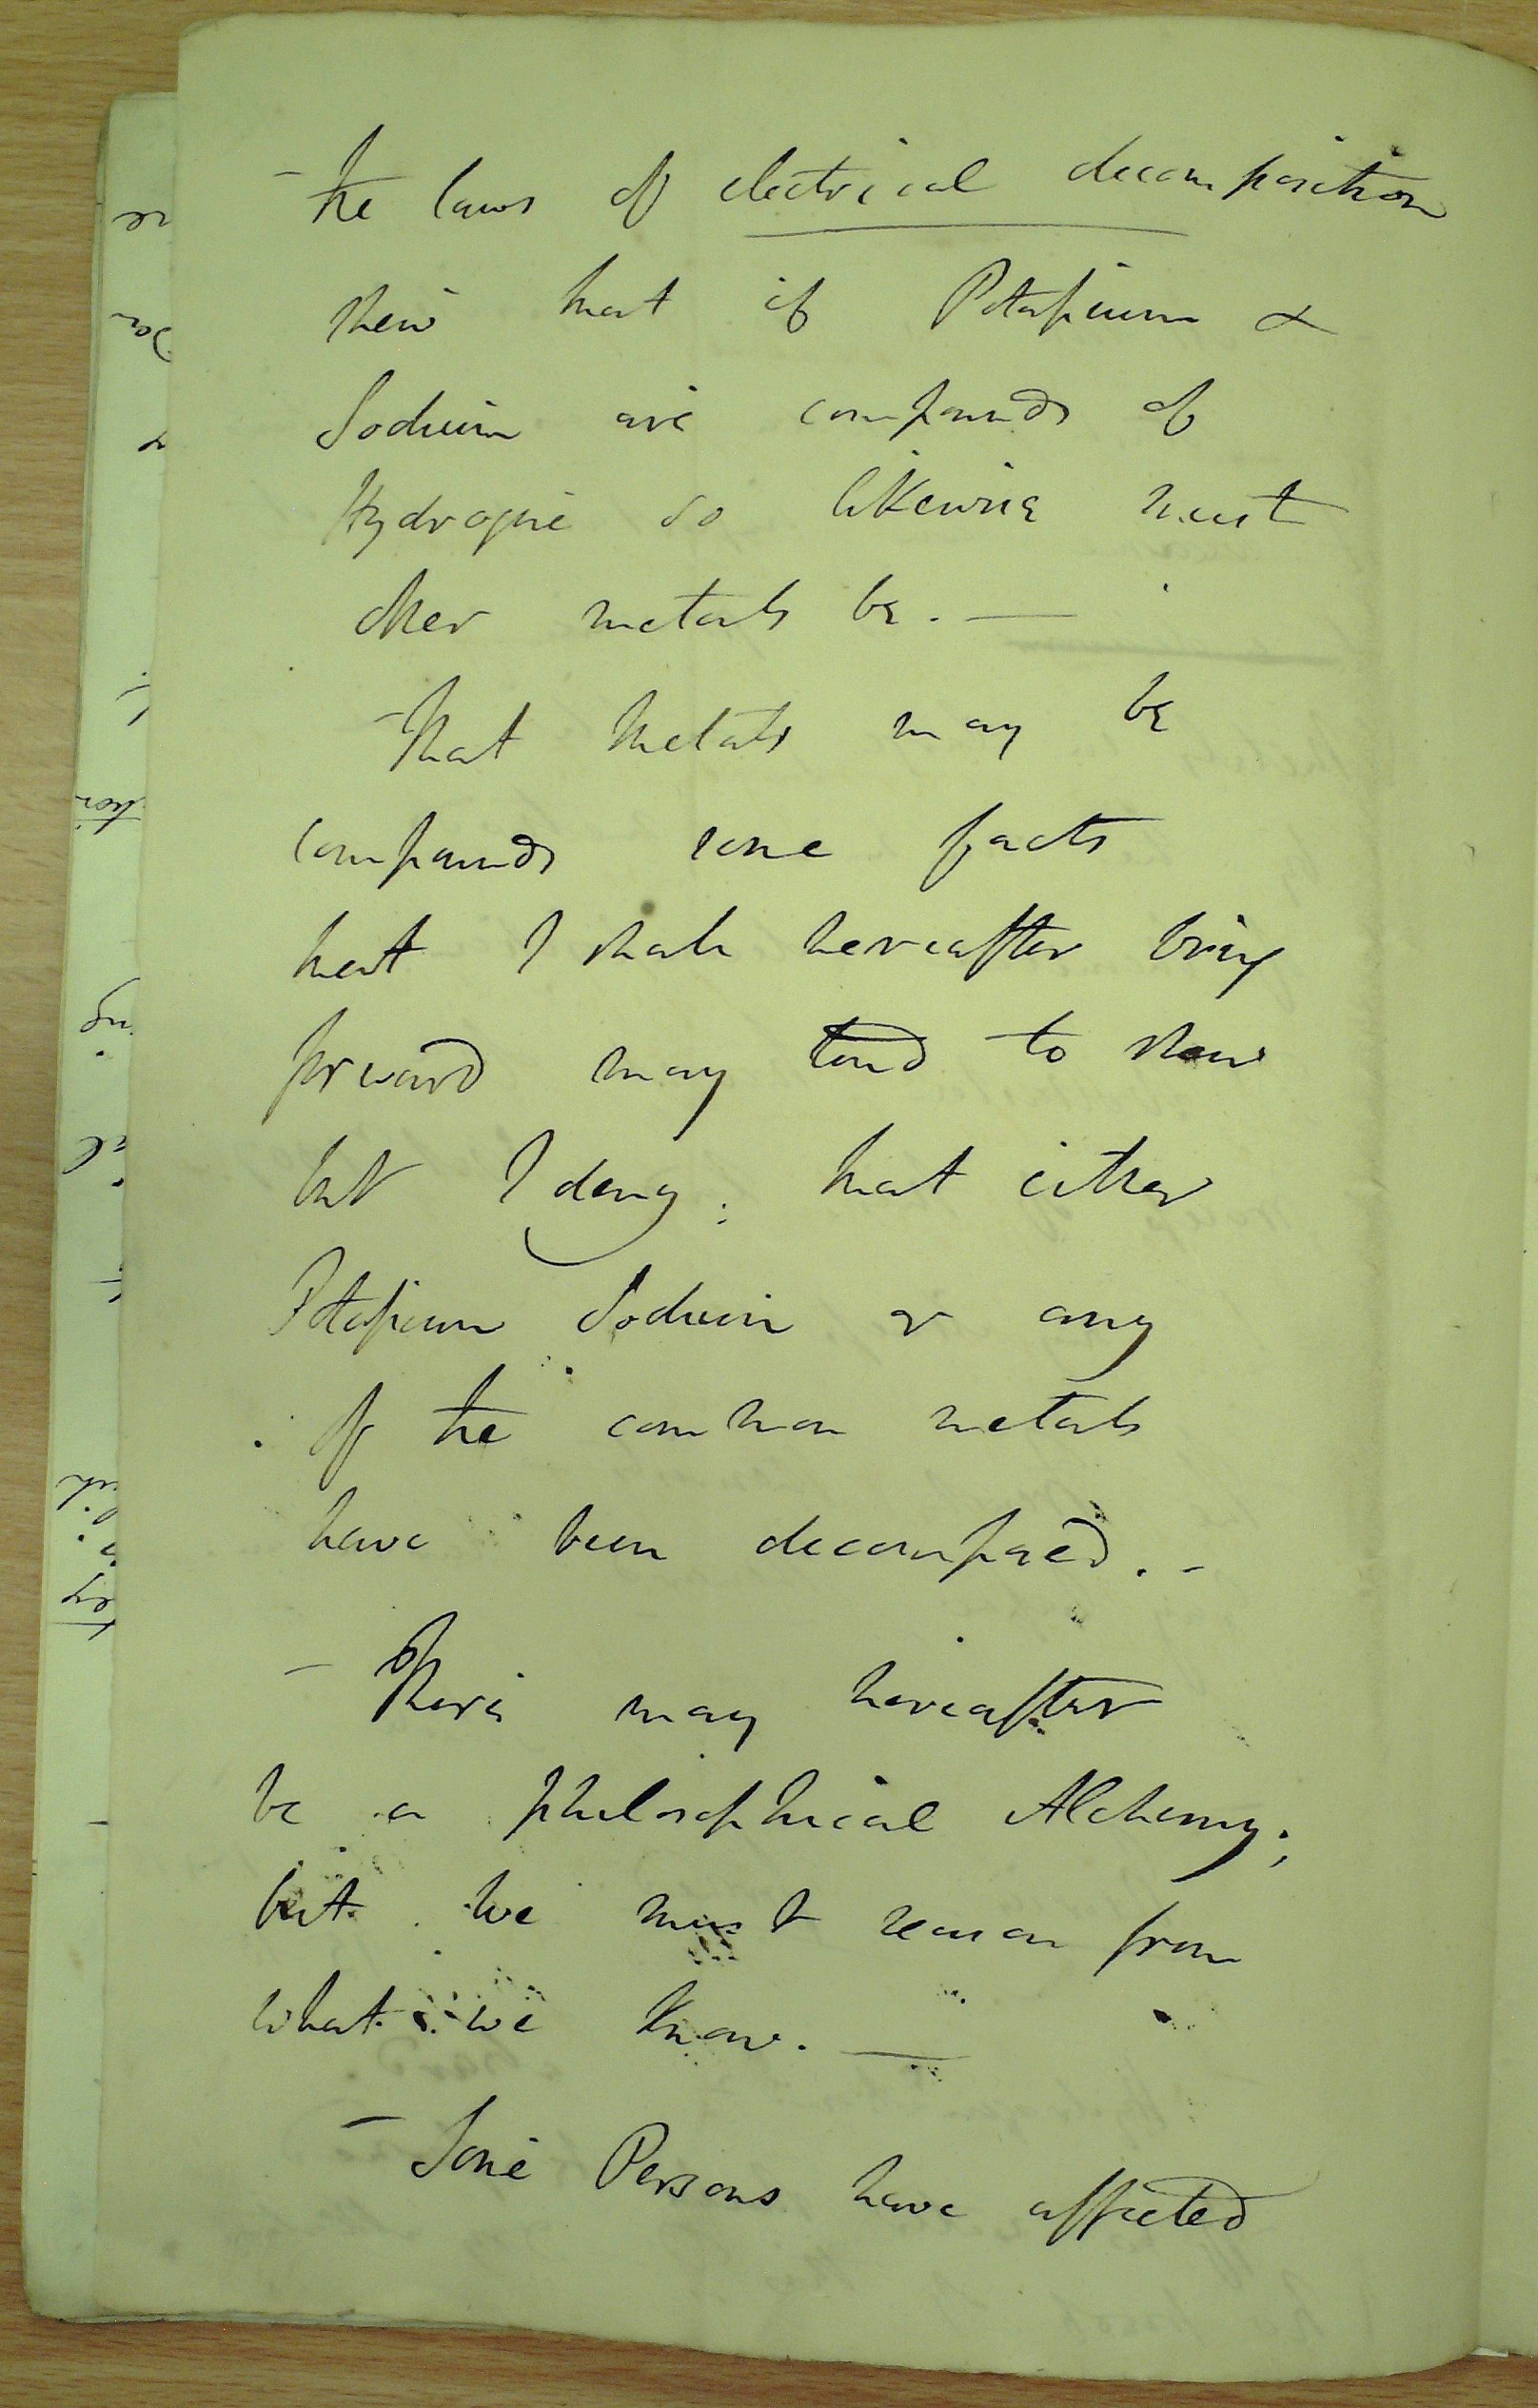 - The laws of electrical decomposition
shew that if Potassium &
Sodium are compounds of
Hydrogene so likewise must
other metals be. —
- That Metals may be
compounds some facts
that I shall hereafter bring
forward may tend to shew
but I deny; that either
Potassium Sodium or any
of the common metals
have been decomposed. -
- There may hereafter
be a philosophical Alchemy;
but we must reason from
what we know. —
- Some Persons have affected